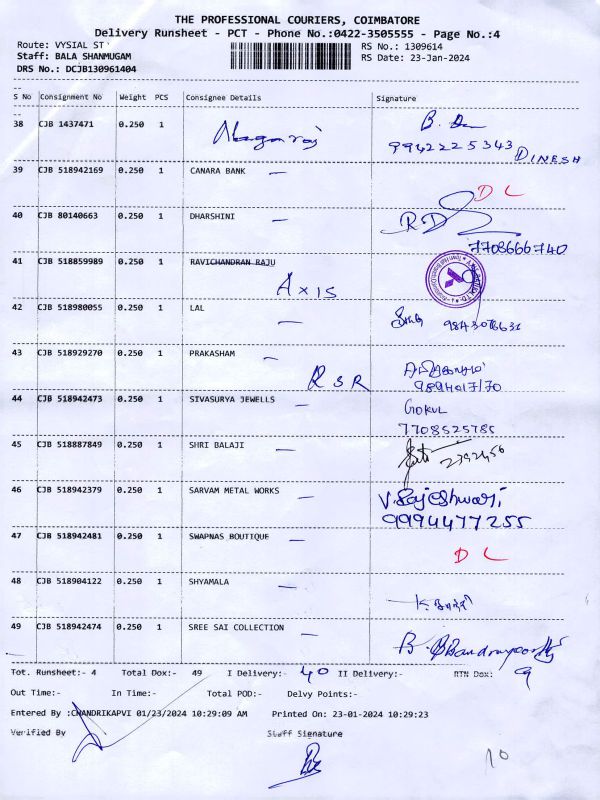 THE PROFESSIONAL COURIERS, COIMBATORE
Delivery Runsheet - PCT - Phone No.:0422-3505555 - Page No.:4
Route: VYSIAL ST
RS No.: 1309614
Staff: BALA SHANMUGAM
RS Date: 23-Jan-2024
DRS No.: DCJB130961404
S No Consignment No Weight PCS Consignee Details Signature
38 CJB 1437471 0.250 1 Nagaraj B.
9942225343 DINESH
39 CJB 518942169 0.250 1 CANARA BANK —
DL
40 CJB 80140663 0.250 1 DHARSHINI — RD
7708666740
41 CJB 518859989 0.250 1 RAVICHANDRAN RAJU
AXIS
42 CJB 518980055 0.250 1 LAL —
43 CJB 518929270 0.250 1 PRAKASHAM —
RSR
44 CJB 518942473 0.250 1 SIVASURYA JEWELLS — GOKUL
7708525785
45 CJB 518887849 0.250 1 SHRI BALAJI —
46 CJB 518942379 0.250 1 SARVAM METAL WORKS — V. Rajeshwari
9994477255
47 CJB 518942481 0.250 1 SWAPNAS BOUTIQUE —
DL
48 CJB 518904122 0.250 1 SHYAMALA —
49 CJB 518942474 0.250 1 SREE SAI COLLECTION —
Tot. Runsheet:- 4 Total Dox:- 49 I Delivery:- 40 II Delivery:- RTN Dox: 9
Out Time:- In Time:- Total POD:- Delvy Points:-
Entered By :CHANDRIKAPVI 01/23/2024 10:29:09 AM Printed On: 23-01-2024 10:29:23
Verified By Staff Signature
10